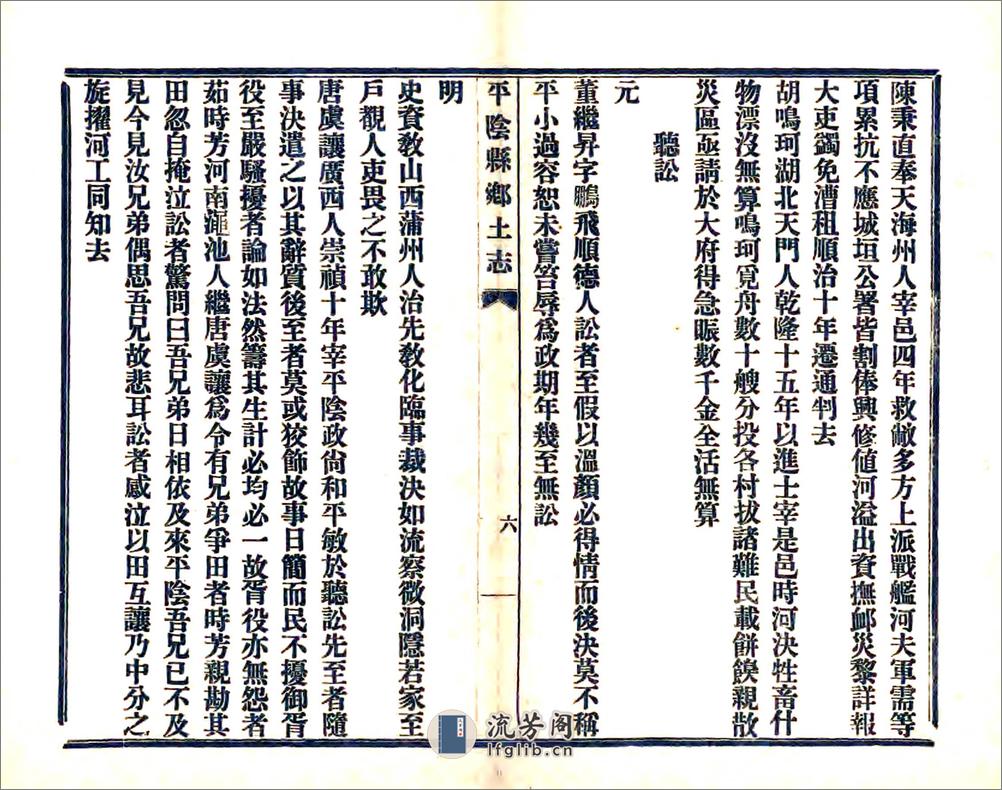 陳秉直奉天海州人宰邑四年救敝多方上派戰艦河夫軍需等
項累抗不應城垣公署皆割俸興修値河溢出資撫衈災黎詳報
大吏蠲免漕租順治十年遷通判去
胡鳴珂湖北天門人乾隆十五年以進士宰是邑時河決牲畜什
物漂沒無算鳴珂覓舟數十艘分投各村拔諸難民載餅餽親散
災區亟請於大府得急賑數千金全活無算
聽訟
元
董繼昇字鵬飛順德人訟者至假以溫顏必得情而後決莫不稱
平小過容恕未嘗笞辱爲政期年幾至無訟
平陰縣鄉土志
六
明
史資敎山西蒲州人治先敎化臨事裁決如流察微洞隱若家至
戶覩人吏畏之不敢欺
唐虞讓廣西人崇禎十年宰平陰政尙和平敏於聽訟先至者隨
事決遣之以其辭質後至者莫或狡飾故事日簡而民不擾御胥
役至嚴騷擾者論如法然籌其生計必均必一故胥役亦無怨者
茹時芳河南澠池人繼唐虞讓爲令有兄弟爭田者時芳親勘其
田忽自掩泣訟者驚問曰吾兄弟日相依及來平陰吾兄已不及
見今見汝兄弟偶思吾兄故悲耳訟者感泣以田互讓乃中分之
旋擢河工同知去
流芳阁
lfglib.cn